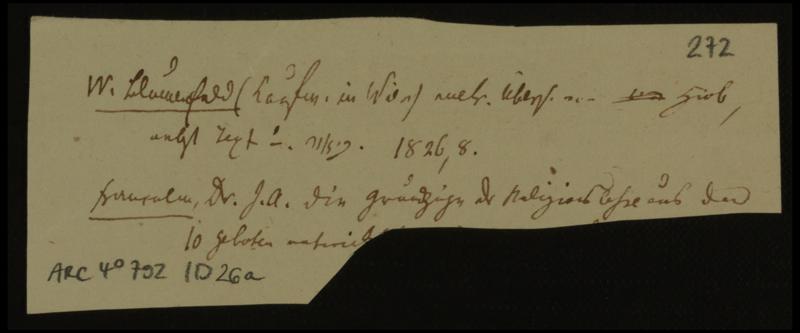 272
W. Blumenfeld (Kaufm. in Wien) metr. Übers. von Hiob,
nebst Text u. ביאור. 1826, 8.
Francolm, Dr. J. A. die Grundzüge der Religionslehre aus den
10 Geboten entwickelt
ARC 4° 792 / D26a